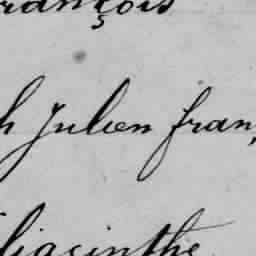 rançois
h Julien fran,
liacinthe